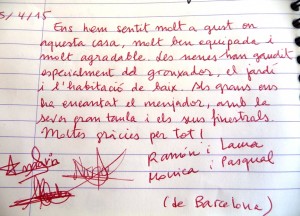 5/4/15
Ens hem sentit molt a gust en
aquesta casa, molt ben equipada i
molt agradable. Les nenes han gaudit
especialment del gronxador, el jardí
i l'habitació de baix. Als grans ens
ha encantat el menjador, amb la
seva gran taula i els seus finestrals.
Moltes gràcies per tot!
Ramón i Laura
Monica i Pasqual
(de Barcelona)